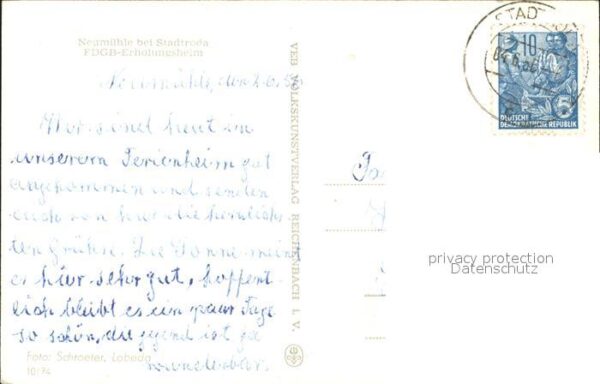 Neumühle bei Stadtroda
FDGB-Erholungsheim
Neumühle, den
Wir sind heut in
unserem Ferienheim gut
angekommen und senden
euch von hier die herzlich-
sten Grüße. Die Sonne meint
es hier sehr gut, hoffent-
lich bleibt es ein paar Tage
so schön, die gegend ist ja
wunderbar.
Foto: Schroeter, Lobeda
10/74
VEB VOLKSKUNSTVERLAG REICHENBACH I. V.
STADT
10
DEUTSCHE
DEMOKRATISCHE REPUBLIK
5
privacy protection
Datenschutz